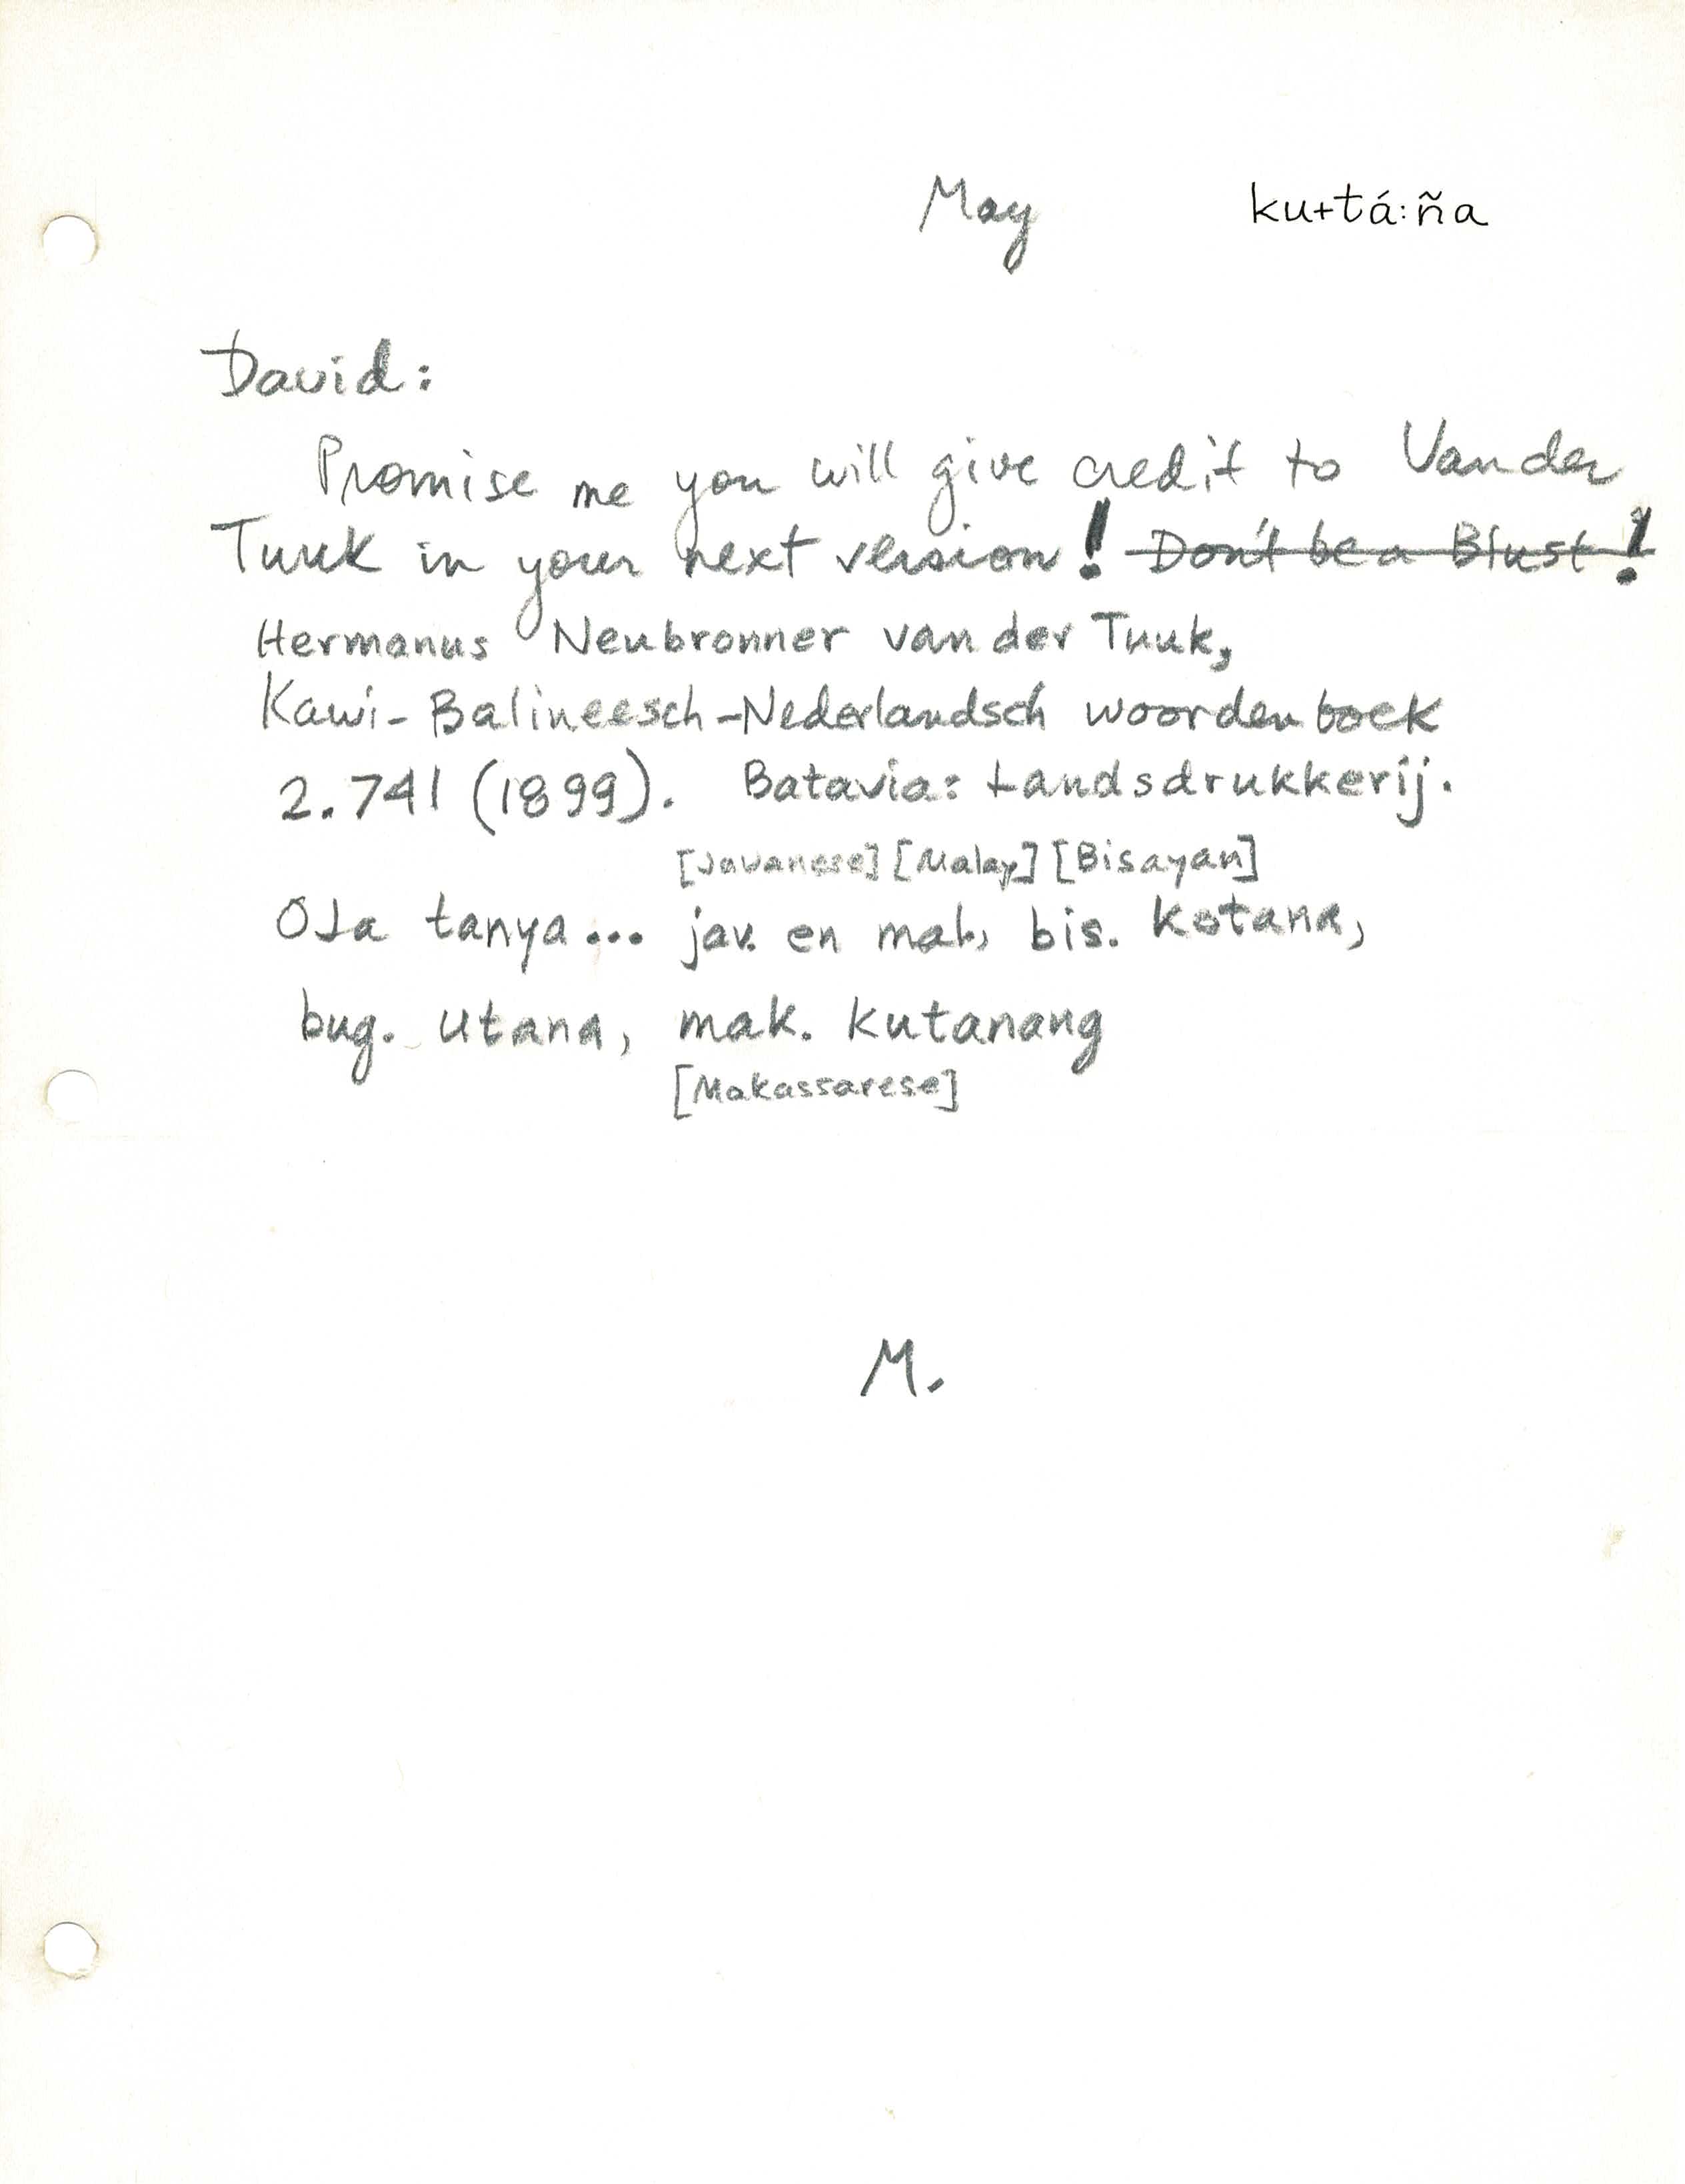 May ku+tá:ña
David:
Promise me you will give credit to Van der
Tuuk in your next version! Don't be a Blust!
Hermanus Neubronner van der Tuuk,
Kawi-Balineesch-Nederlandsch woordenboek
2.741 (1899). Batavia: Landsdrukkerij.
[Javanese] [Malay] [Bisayan]
OJa tanya... jav. en mal., bis. kotana,
bug. utana, mak. kutanang
[Makassarese]
M.